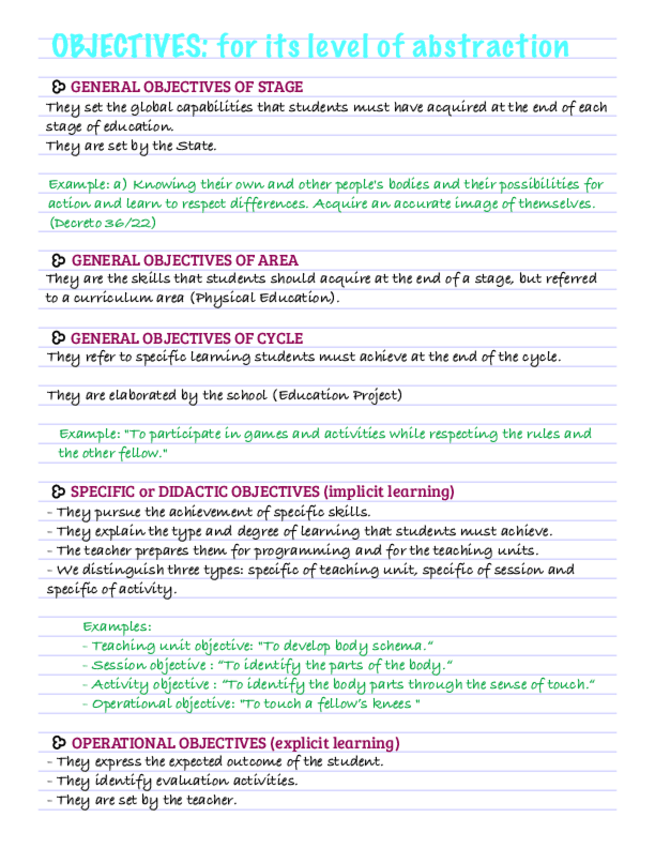 OBJECTIVES: for its level of abstraction
GENERAL OBJECTIVES OF STAGE
They set the global capabilities that students must have acquired at the end of each
stage of education.
They are set by the State.
Example: a) Knowing their own and other people's bodies and their possibilities for
action and learn to respect differences. Acquire an accurate image of themselves.
(Decreto 36/22)
GENERAL OBJECTIVES OF AREA
They are the skills that students should acquire at the end of a stage, but referred
to a curriculum area (Physical Education).
GENERAL OBJECTIVES OF CYCLE
They refer to specific learning students must achieve at the end of the cycle.
They are elaborated by the school (Education Project)
Example: "To participate in games and activities while respecting the rules and
the other fellow."
SPECIFIC or DIDACTIC OBJECTIVES (implicit learning)
- They pursue the achievement of specific skills.
- They explain the type and degree of learning that students must achieve.
- The teacher prepares them for programming and for the teaching units.
- We distinguish three types: specific of teaching unit, specific of session and
specific of activity.
Examples:
- Teaching unit objective: "To develop body schema."
- Session objective : "To identify the parts of the body."
- Activity objective : "To identify the body parts through the sense of touch."
- Operational objective: "To touch a fellow's knees "
OPERATIONAL OBJECTIVES (explicit learning)
- They express the expected outcome of the student.
- They identify evaluation activities.
- They are set by the teacher.